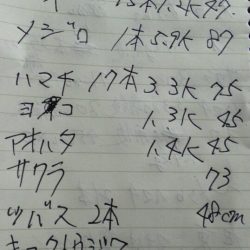 15本 1.2K 49
メジロ 1本 5.9K 87
ハマチ 17本 3.3K 75
ヨコ 1.3K 45
アオハタ 1.4K 45
サワラ 73
ツバス 2本 48cm